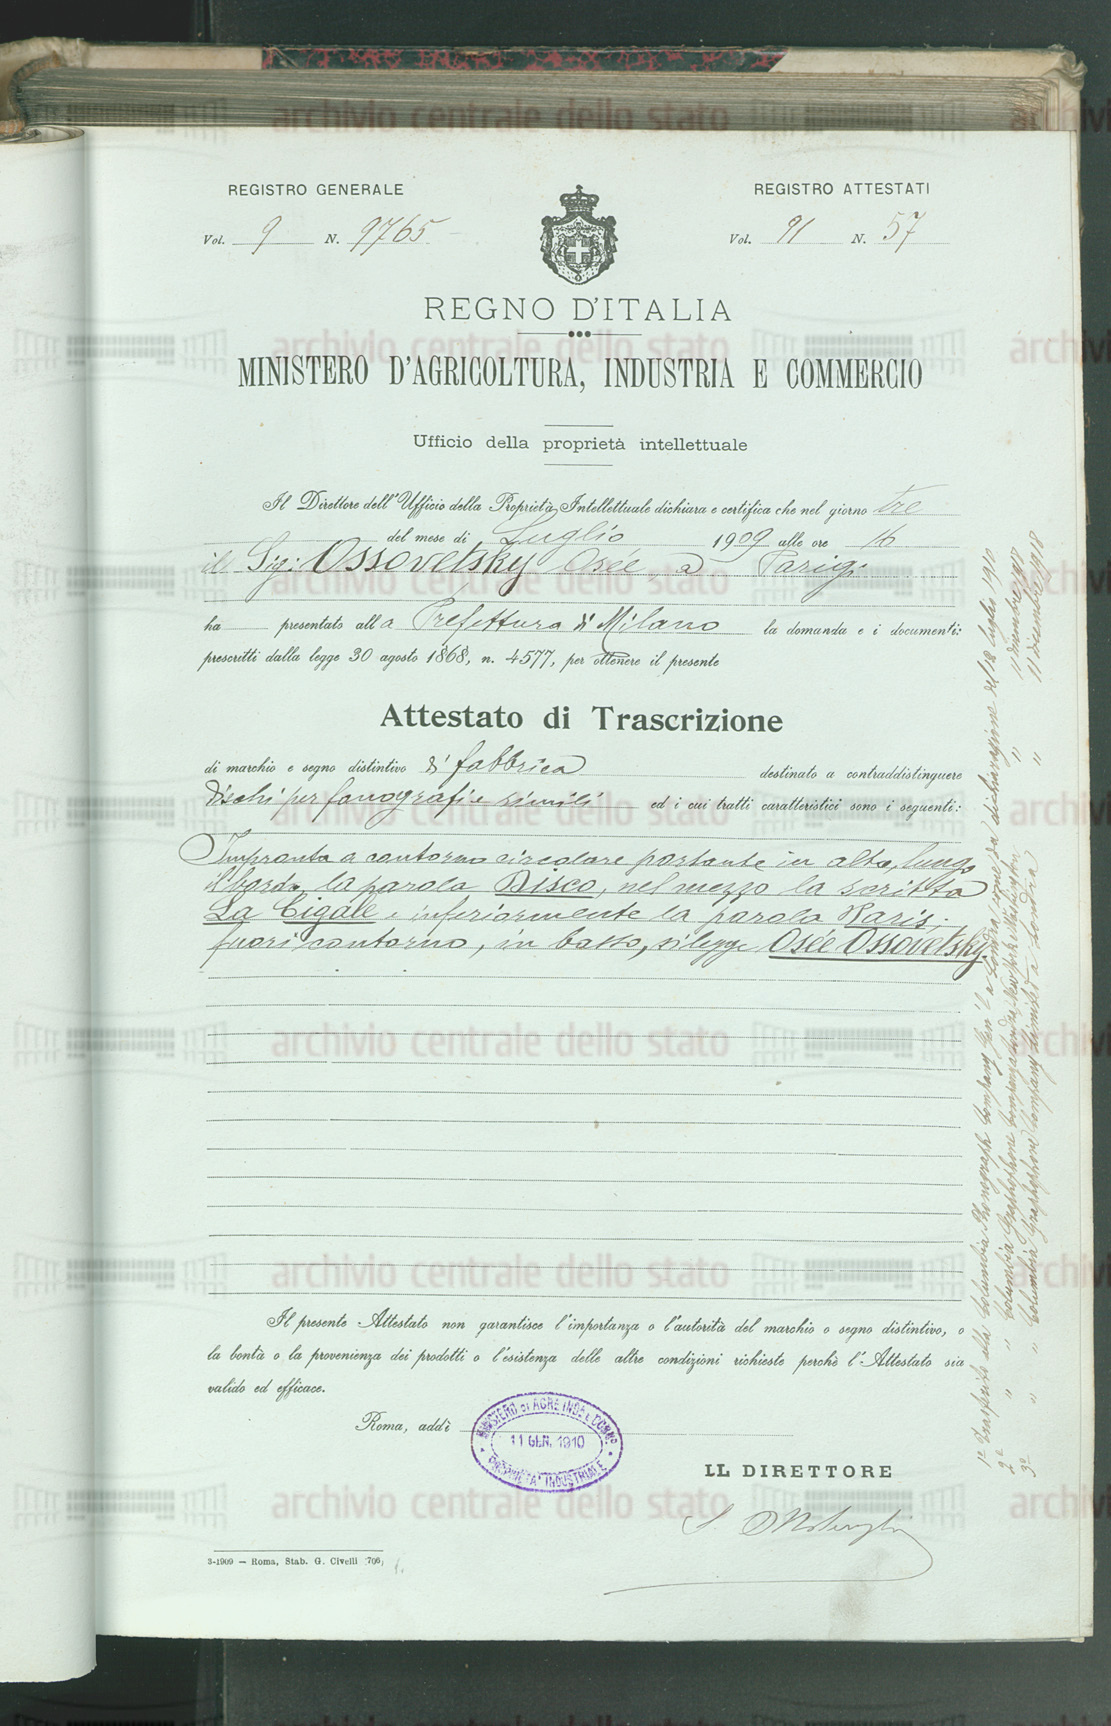 REGISTRO GENERALE
Vol. 9 N. 9765
REGISTRO ATTESTATI
Vol. 91 N. 57
REGNO D'ITALIA
MINISTERO D'AGRICOLTURA, INDUSTRIA E COMMERCIO
Ufficio della proprietà intellettuale
Il Direttore dell'Ufficio della Proprietà Intellettuale dichiara e certifica che nel giorno tre
del mese di Luglio 1909 alle ore 16
il Sig: Ossovetsky Osée, a Parigi
ha presentato alla Prefettura di Milano la domanda e i documenti:
prescritti dalla legge 30 agosto 1868, n. 4577, per ottenere il presente
Attestato di Trascrizione
di marchio e segno distintivo di fabbrica destinato a contraddistinguere
dischi per fonografi e simili ed i cui tratti caratteristici sono i seguenti:
Impronta a contorno circolare portante in alto, lungo
il bordo, la parola Disco, nel mezzo la scritta
La Cigale e inferiormente la parola Paris;
fuori contorno, in basso, si legge Osée Ossovetsky.
Il presente Attestato non garantisce l'importanza o l'autorità del marchio o segno distintivo, o
la bontà o la provenienza dei prodotti o l'esistenza delle altre condizioni richieste perchè l'Attestato sia
valido ed efficace.
Roma, addì
MINISTERO DI AGRE INDE COMMO
11 GEN. 1910
PROPRIETA' INDUSTRIALE
IL DIRETTORE
3-1909 — Roma, Stab. G. Civelli (706)
1° Trasferito alla Columbia Phonograph Company Gen'l a Londra, come da dichiarazione del 18 luglio 1910
2° " " Columbia Graphophone Company " 11 dicembre 1918
3° " " Columbia Graphophone Company Limited a Londra " 11 dicembre 1918
archivio centrale dello stato